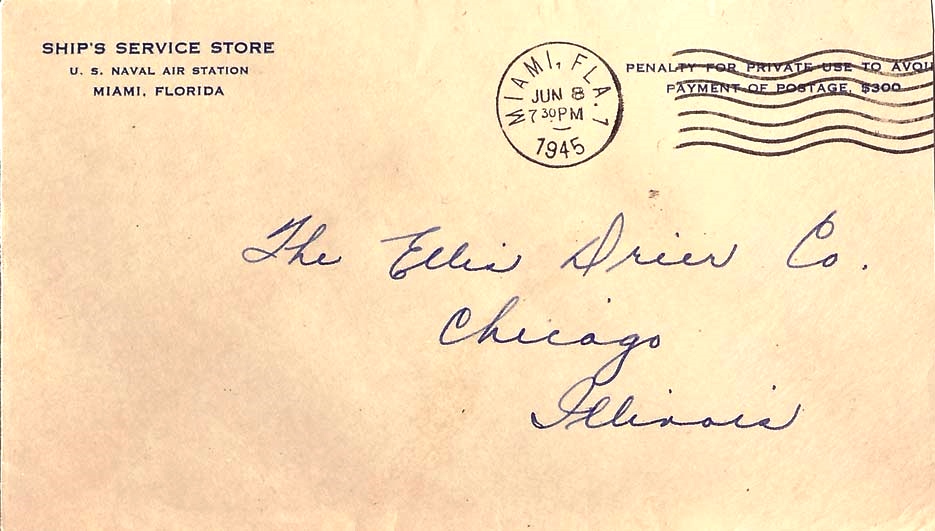 SHIP'S SERVICE STORE
U. S. NAVAL AIR STATION
MIAMI, FLORIDA
MIAMI, FLA. 1
JUN 8
7 30 PM
1945
PENALTY FOR PRIVATE USE TO AVOID
PAYMENT OF POSTAGE, $300
The Ellis Drier Co.
Chicago
Illinois